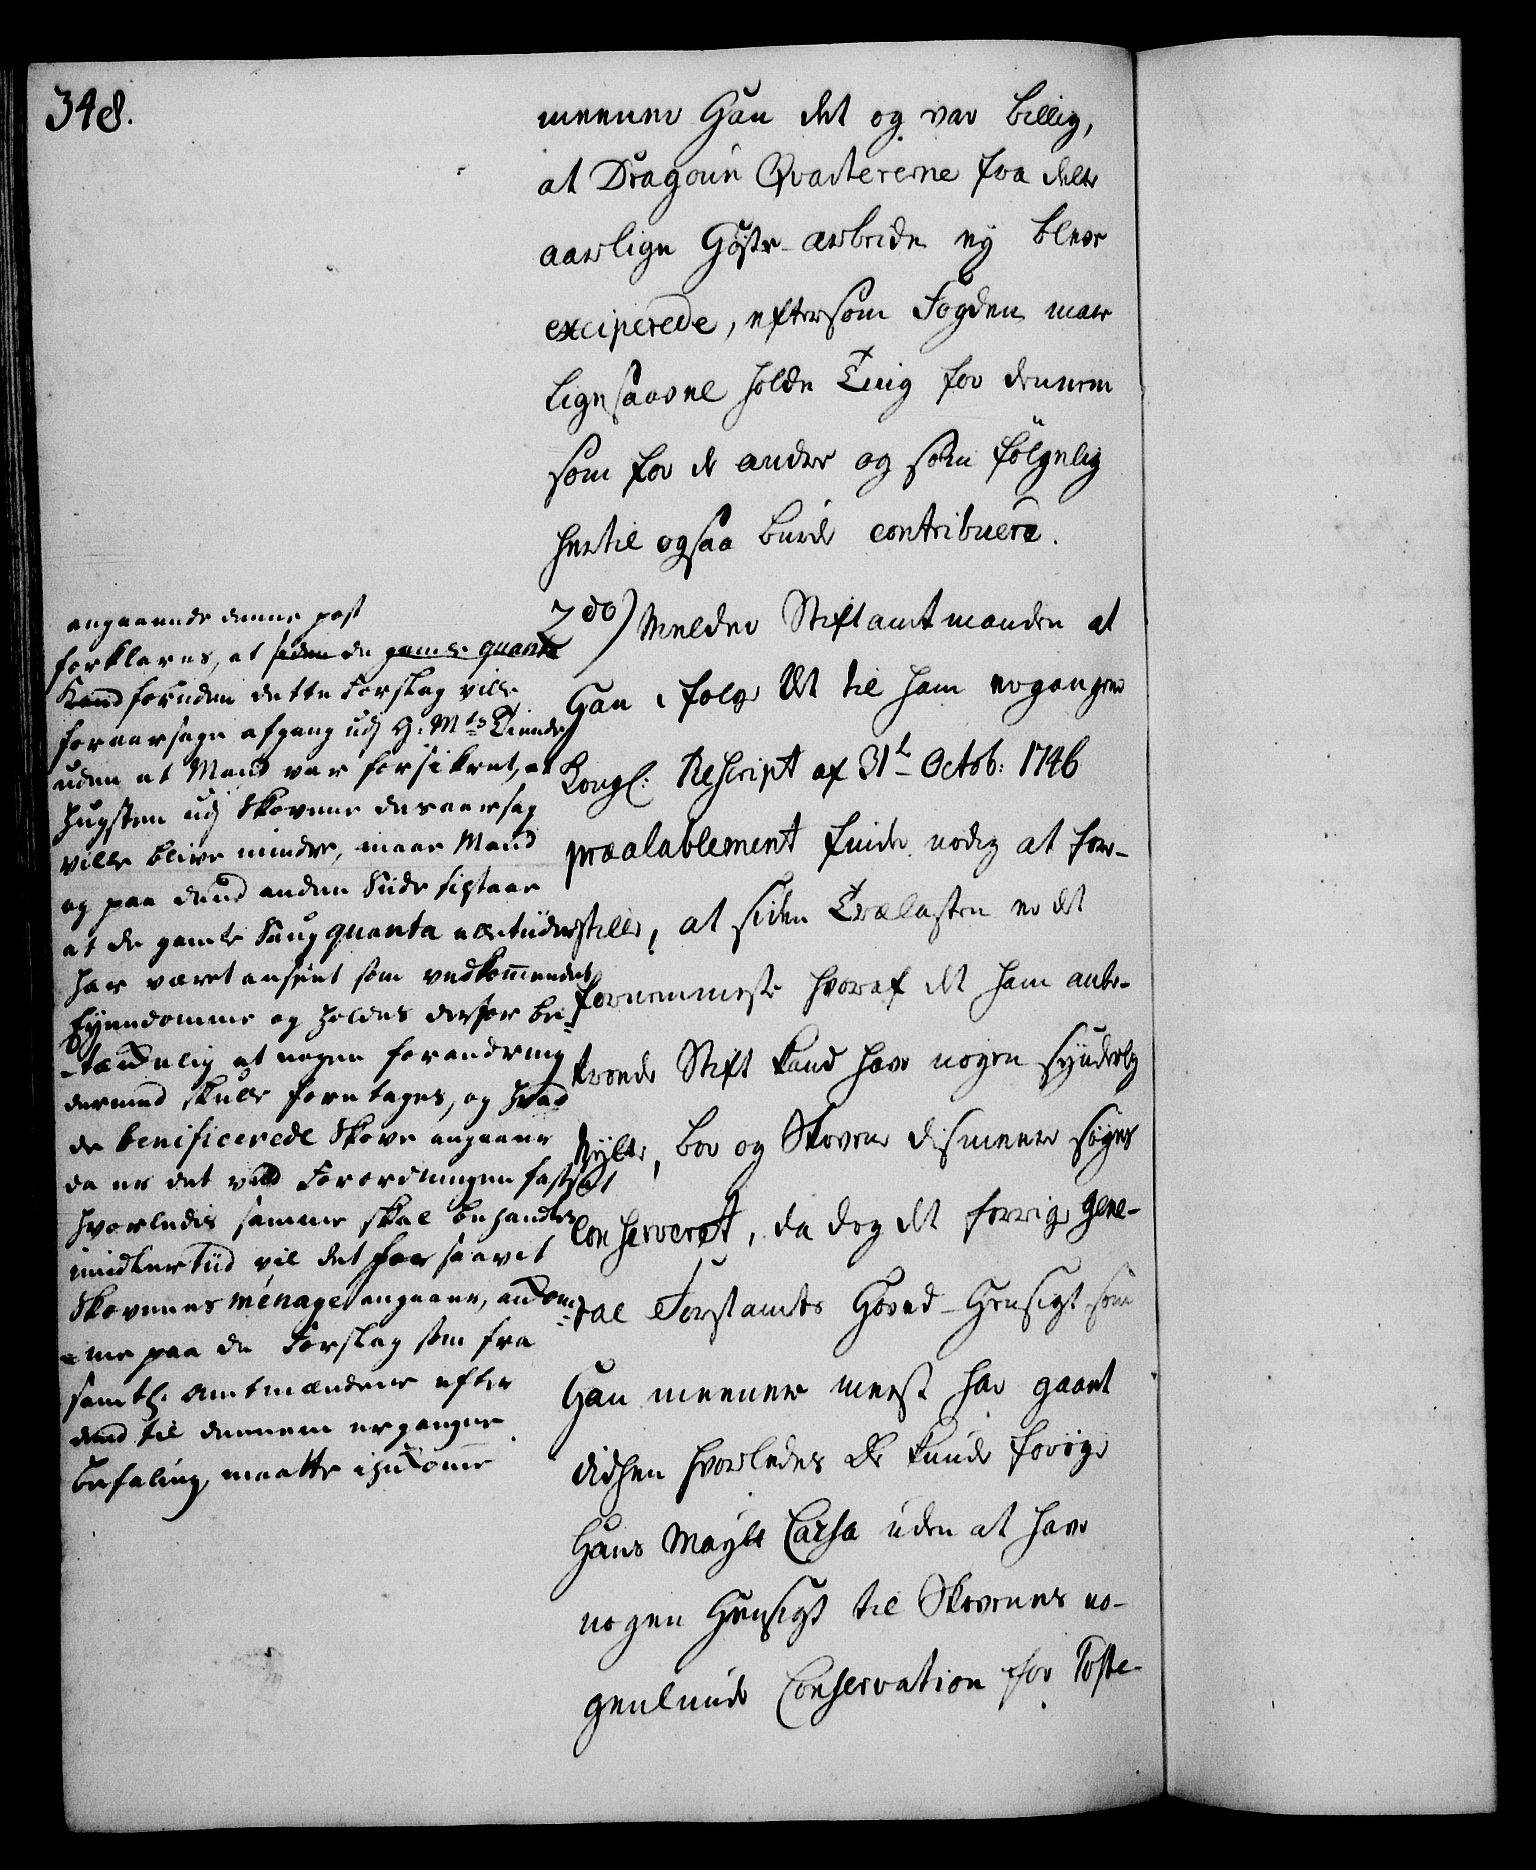 348.
meener Han det og var billig,
at Dragoun Qvartererne fra dette
aarlige Høste-arbeide ey bleve
exciperede, eftersom Fogden maae
ligesaavel holde Ting for dennem
som for de andre og som følgelig
hertil ogsaa burde contribuere.
2do) Melder Stiftamtmanden at
Han i følge det til ham ergangne
Kongl: Rescript af 31t Octob: 1746
præalablement finder nødig at fore-
stille, at siden Trælasten er det
fornemmeste hvoraf det ham anbe-
troede Stift kand have nogen synderlig
Nytte, bør og Skovene dismeere søges
Conserveret, da dog det forrige Gene-
ral Forstamts Hoved-Hensigt som
Han meener meest har gaaet
didhen hvorledes De kunde forøge
Hans Mayts Cassa uden at have
nogen Hensigt til Skovenes no-
genlunde Conservation for Poste-
angaaende denne post
forklares, at siden de gamle quanta
Kand foruden dette Forslag ville
foraarsage afgang udj H: Mts Tiender
uden at Mand var forsikret, at
Hugsten udj Skovene desaarsag
ville blive mindre, maae Mand
og paa dend anden Siide tilstaae
at de gamle Saug quanta alletiider
har været anseet som vedkommendes
Eyendomme og holdes derfor be-
tænkelig at nogen forandring
dermed skulle foretages, og hvad
de benificerede Skove angaaer
da er det ved Forordningen fastsat
hvorledis samme skal behandles
imidlertiid vil det for saavit
Skovenes menage angaaer, ankom-
me paa de Forslag som fra
samtl. Amtmændene efter
dend til dennem ergangne
befaling, maatte indkomme